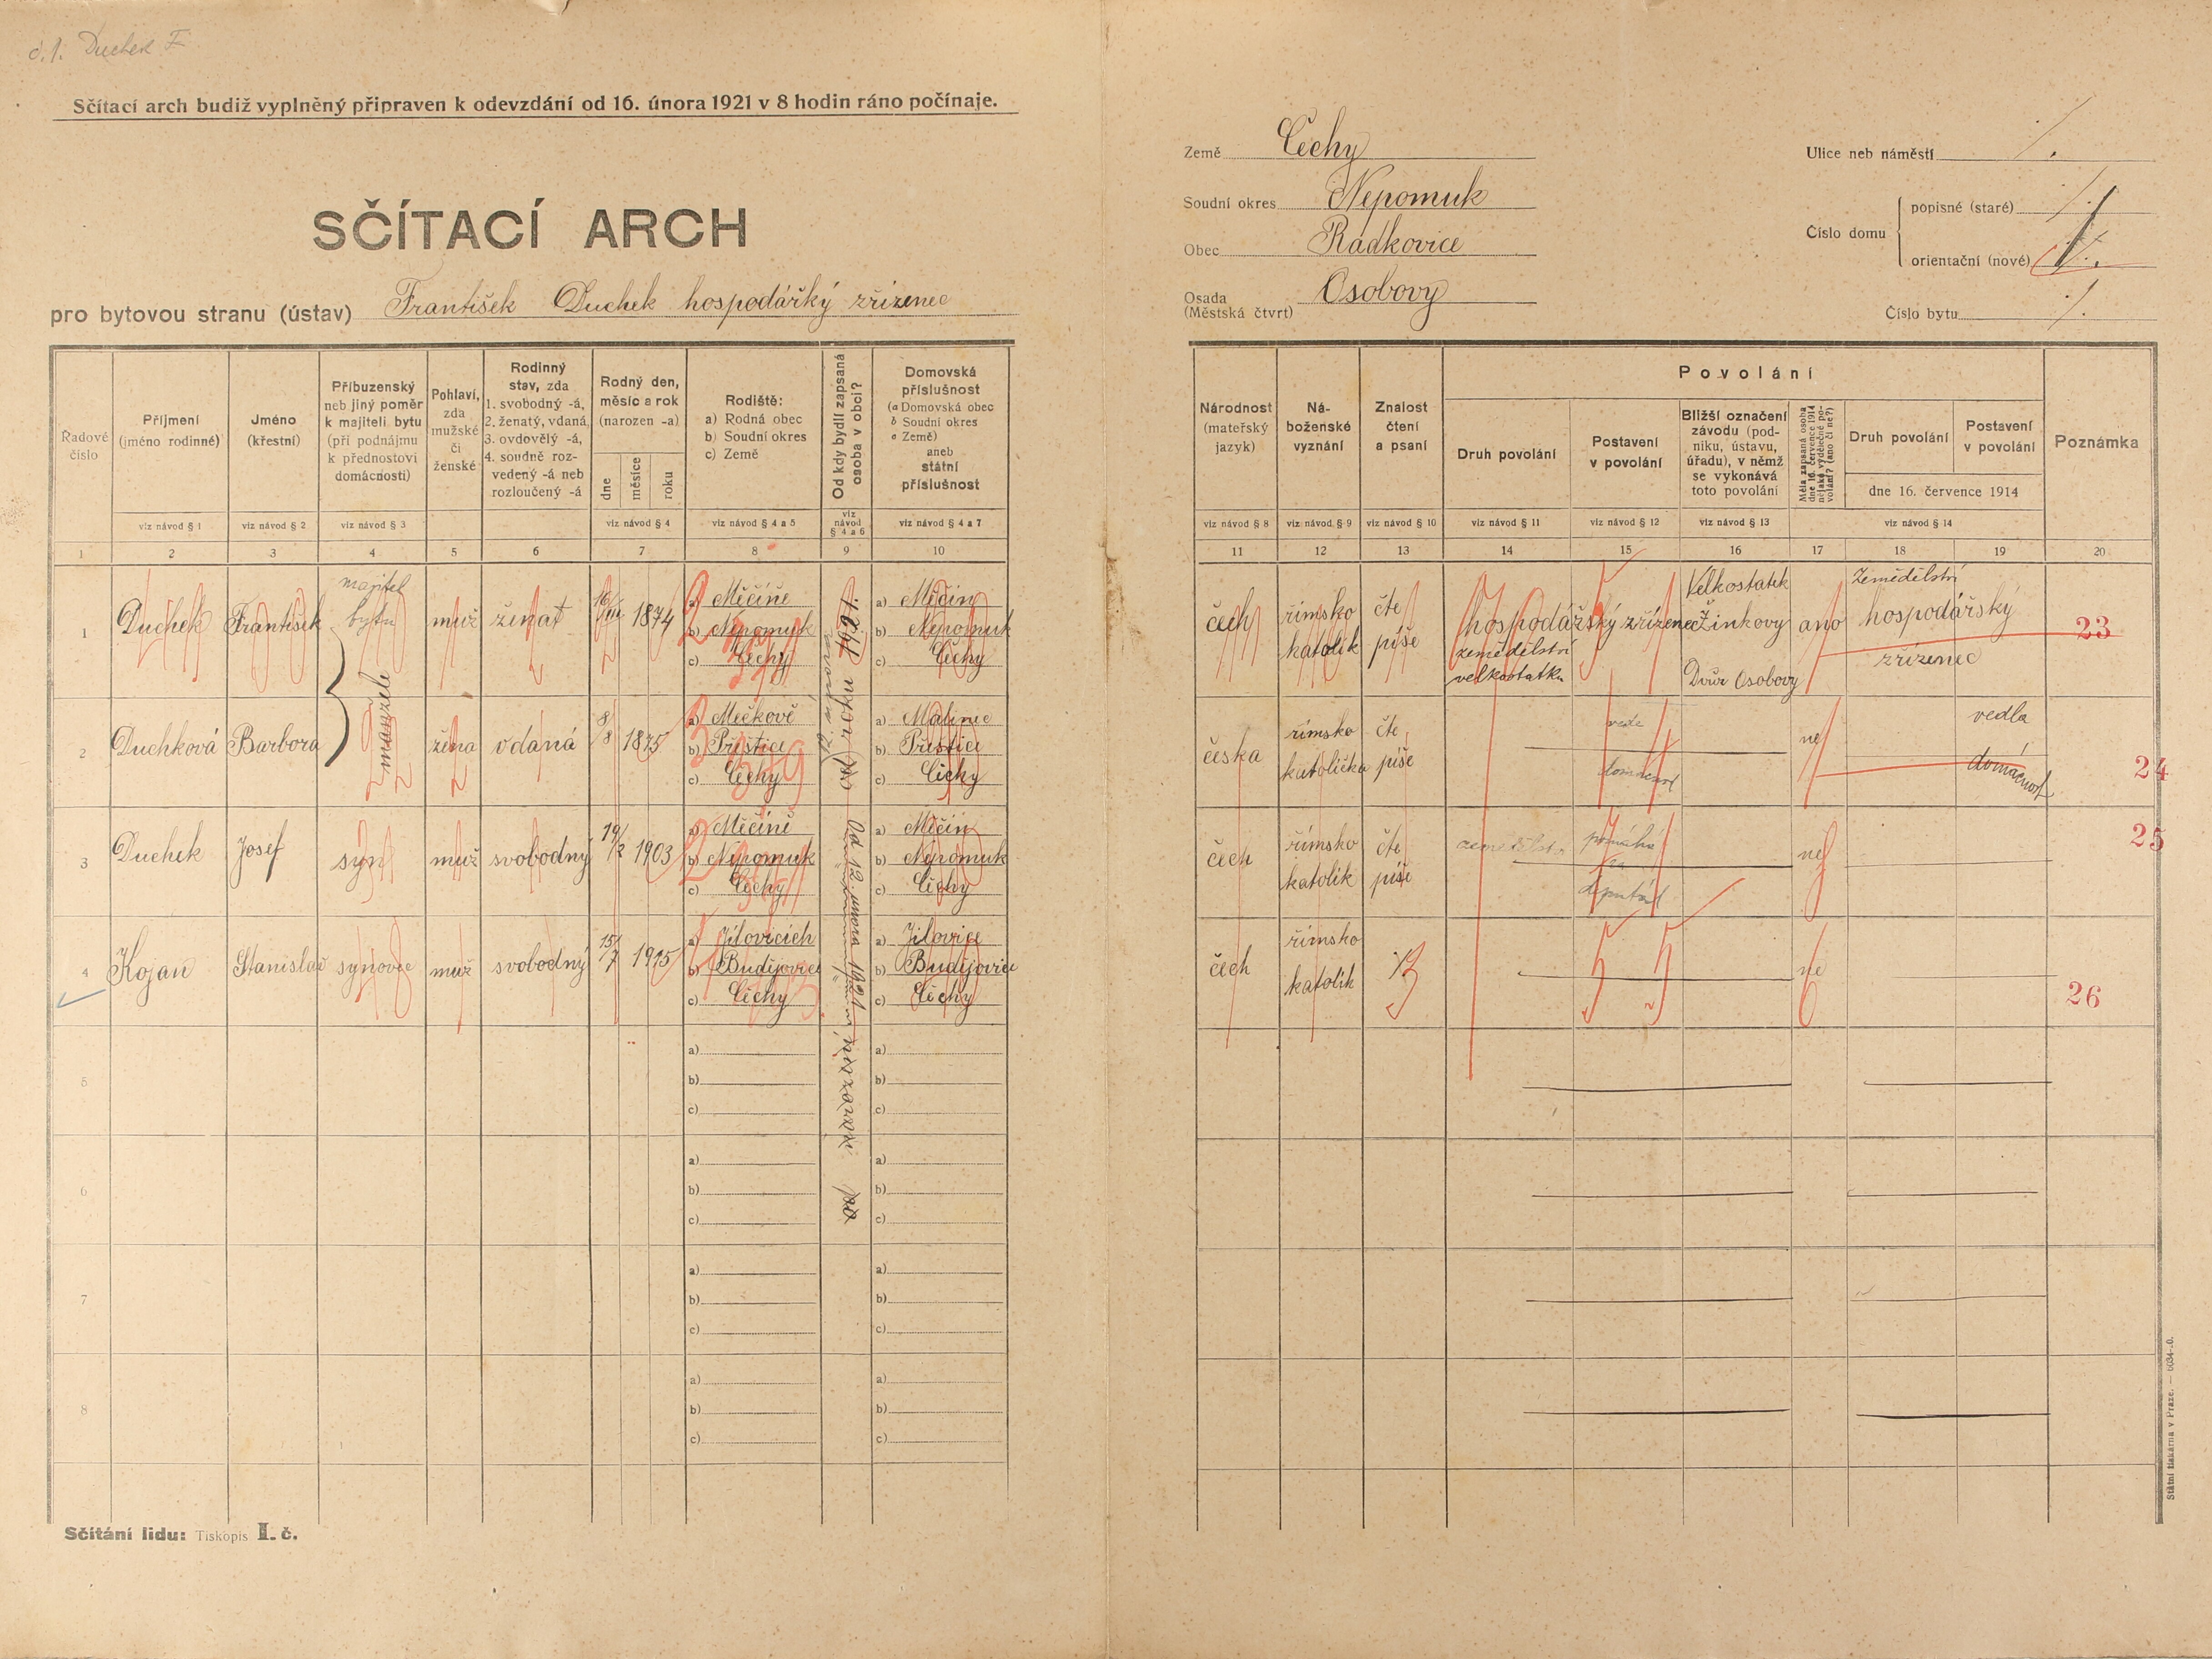 č.1. Duchek F
Sčítací arch budiž vyplněný připraven k odevzdání od 16. února 1921 v 8 hodin ráno počínaje.
SČÍTACÍ ARCH
pro bytovou stranu (ústav) František Duchek hospodářký zřízenec
Země Čechy
Soudní okres Nepomuk
Obec Radkovice
Osada (Městská čtvrt) Osobovy
Ulice neb náměstí
Číslo domu
popisné (staré)
orientační (nové) 1.
Číslo bytu
Řadové číslo
Příjmení (jméno rodinné)
Jméno (křestní)
Příbuzenský neb jiný poměr k majiteli bytu (při podnájmu k přednostovi domácnosti)
Pohlaví, zda mužské či ženské
Rodinný stav, zda 1. svobodný -á, 2. ženatý, vdaná, 3. ovdovělý -á, 4. soudně rozvedený -á neb rozloučený -á
Rodný den, měsíc a rok (narozen -a)
dne měsíce roku
Rodiště: a) Rodná obec b) Soudní okres c) Země
Od kdy bydlí zapsaná osoba v obci?
Domovská příslušnost (a Domovská obec b Soudní okres c Země) aneb státní příslušnost
Národnost (mateřský jazyk)
Náboženské vyznání
Znalost čtení a psaní
Povolání
Druh povolání
Postavení v povolání
Bližší označení závodu (podniku, ústavu, úřadu), v němž se vykonává toto povolání
Měla zapsaná osoba dne 16. července 1914 nějaké výdělečné povolání? (ano či ne?)
Druh povolání
Postavení v povolání
dne 16. července 1914
Poznámka
viz návod § 1 viz návod § 2 viz návod § 3 viz návod § 4 viz návod § 4 a 5 viz návod § 4 a 6 viz návod § 4 a 7
viz návod § 8 viz návod § 9 viz návod § 10 viz návod § 11 viz návod § 12 viz návod § 13 viz návod § 14
1 2 3 4 5 6 7 8 9 10
11 12 13 14 15 16 17 18 19 20
1 Duchek František majitel bytu muž ženat 16/VIII 1874
a) Měčíně b) Nepomuk c) Čechy
a) Měčin b) Nepomuk c) Čechy
čech římsko katolík čte píše
hospodářský zřízenec
zemědělství velkostatku
Velkostatek Žinkovy
Dvůr Osobovy
ano
Zemědělství hospodářský zřízenec
23
manželé
2 Duchková Barbora žena vdaná 8/8 1875
a) Mečkově b) Přeštice c) Čechy
a) Malinec b) Přeštice c) Čechy
česka římsko katolička čte píše
vede domácnost
ne
vedla domácnost
24
3 Duchek Josef syn muž svobodný 19/2 1903
a) Měčíně b) Nepomuk c) Čechy
a) Měčin b) Nepomuk c) Čechy
čech římsko katolík čte píše
zemědělství
pomáhá
ne
25
4 Kojan Stanislav synovec muž svobodný 15/7 1915
a) Jílovicích b) Budějovice c) Čechy
a) Jílovice b) Budějovice c) Čechy
čech římsko katolík
ne
26
Od 12. února 1921
5 a) b) c) a) b) c)
6 a) b) c) a) b) c)
7 a) b) c) a) b) c)
8 a) b) c) a) b) c)
Sčítání lidu: Tiskopis I. č.
Státní tiskárna v Praze. — 6034-20.